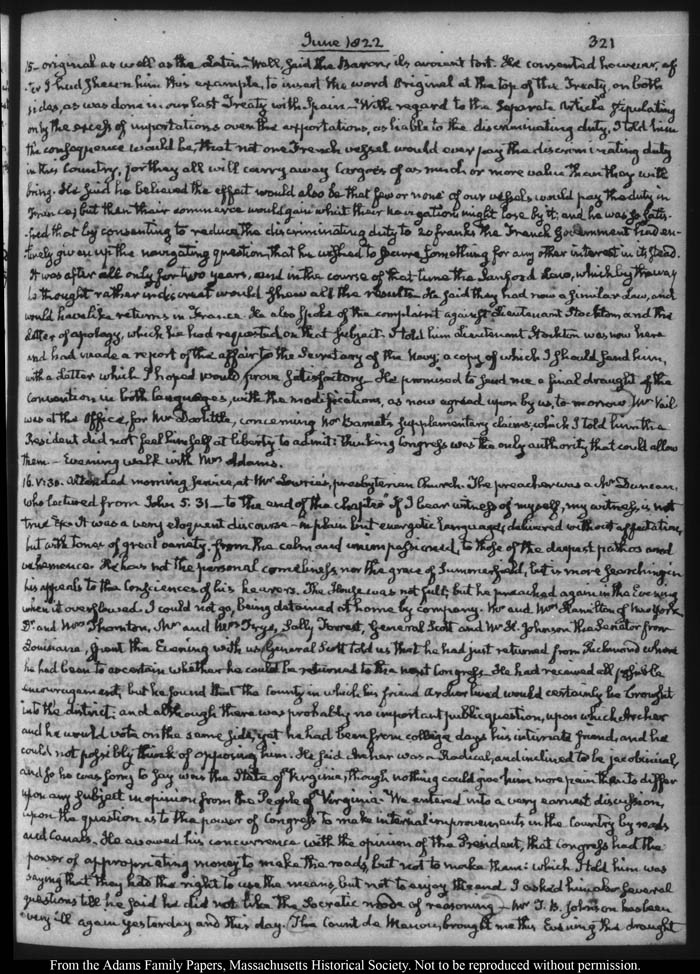 June 1822
321
15- original as well as the Latin- Well, said the Baron, ils avoient tort. He consented however, af-
-ter I had shewn him this example, to insert the word Original at the top of the Treaty, on both
sides, as was done in our last Treaty with Spain- With regard to the Separate Article stipulating
only the excess of importations over the exportations, as liable to the discriminating duty, I told him
the consequence would be, that not one French vessel would ever pay the discriminating duty
in this Country, for they all will carry away Cargoes of as much or more value than they will
bring. He said he believed the effect would also be that few or none of our vessels would pay the duty in
France; but then their commerce would gain what their navigation might lose by it, and he was so satis-
-fied that by consenting to reduce the discriminating duty to 20 francs the French Government had en-
-tirely given up the navigating question, that he wished to secure something for any other interest in its stead.
It was after all only for two years, and in the course of that time the Sanford Law, which by the way
he thought rather indiscreet would shew all the results- He said they had now a similar Law, and
would have like returns in France. He also spoke of the complaint against Lieutenant Stockton, and the
letter of apology, which he had requested on that subject. I told him Lieutenant Stockton was now here
and had made a report of the affair to the Secretary of the Navy; a copy of which I should send him,
with a Letter which I hoped would prove satisfactory- He promised to send me a final draught of the
Convention in both languages, with the modifications, as now agreed upon by us, to-morrow. Mr Vail
was at the Office, for Mr Doolittle, concerning Mr Barnet's supplementary claims; which I told him the
President did not feel himself at liberty to admit: thinking Congress was the only authority that could allow
them- Evening walk with Mrs Adams.
16. V:30. Attended morning service, at Mr Lowrie's, presbyterian Church. The preacher was a Mr Duncan,
who lectured from John 5. 31- to the end of the chapter "If I bear witness of myself, my witness is not
true &c. It was a very eloquent discourse- in plain but energetic language, delivered without affectation,
but with tones of great variety, from the calm and unimpassioned, to those of the deepest pathos and
vehemence. He has not the personal comeliness nor the grace of Summerfield, but is more searching in
his appeals to the Consciences of his hearers. The House was not full, but he preached again in the Evening
when it overflowed. I could not go, being detained at home by company. Mr and Mrs Hamilton of New York
Dr and Mrs Thornton, Mr and Mrs Frye, Sally Forrest, General Scott and Mr H. Johnson the Senator from
Louisiana, spent the Evening with us. General Scott told us that he had just returned from Richmond where
he had been to ascertain whether he could be returned to the next Congress. He had received all possible
encouragement, but he found that the County in which his friend Archer lived would certainly be brought
into the district; and although there was probably no important public question, upon which Archer
and he would vote on the same side, yet he had been from college days his intimate friend, and he
could not possibly think of opposing him. He said Archer was a Radical, and inclined to be jacobinical,
and so he was sorry to say was the State of Virginia, though nothing could give him more pain than to differ
upon any subject in opinion from the People of Virginia- We entered into a very earnest discussion,
upon the question as to the power of Congress to make internal improvements in the Country by roads
and Canals. He avowed his concurrence with the opinion of the President, that Congress had the
power of appropriating money to make the roads, but not to make them: which I told him was
saying that they had the right to use the means, but not to enjoy the end. I asked him also several
questions till he said he did not like the Socratic mode of reasoning- Mr T. B. Johnson has been
very ill again yesterday and this day. The Count de Menou, brought me this Evening the draught
From the Adams Family Papers, Massachusetts Historical Society. Not to be reproduced without permission.